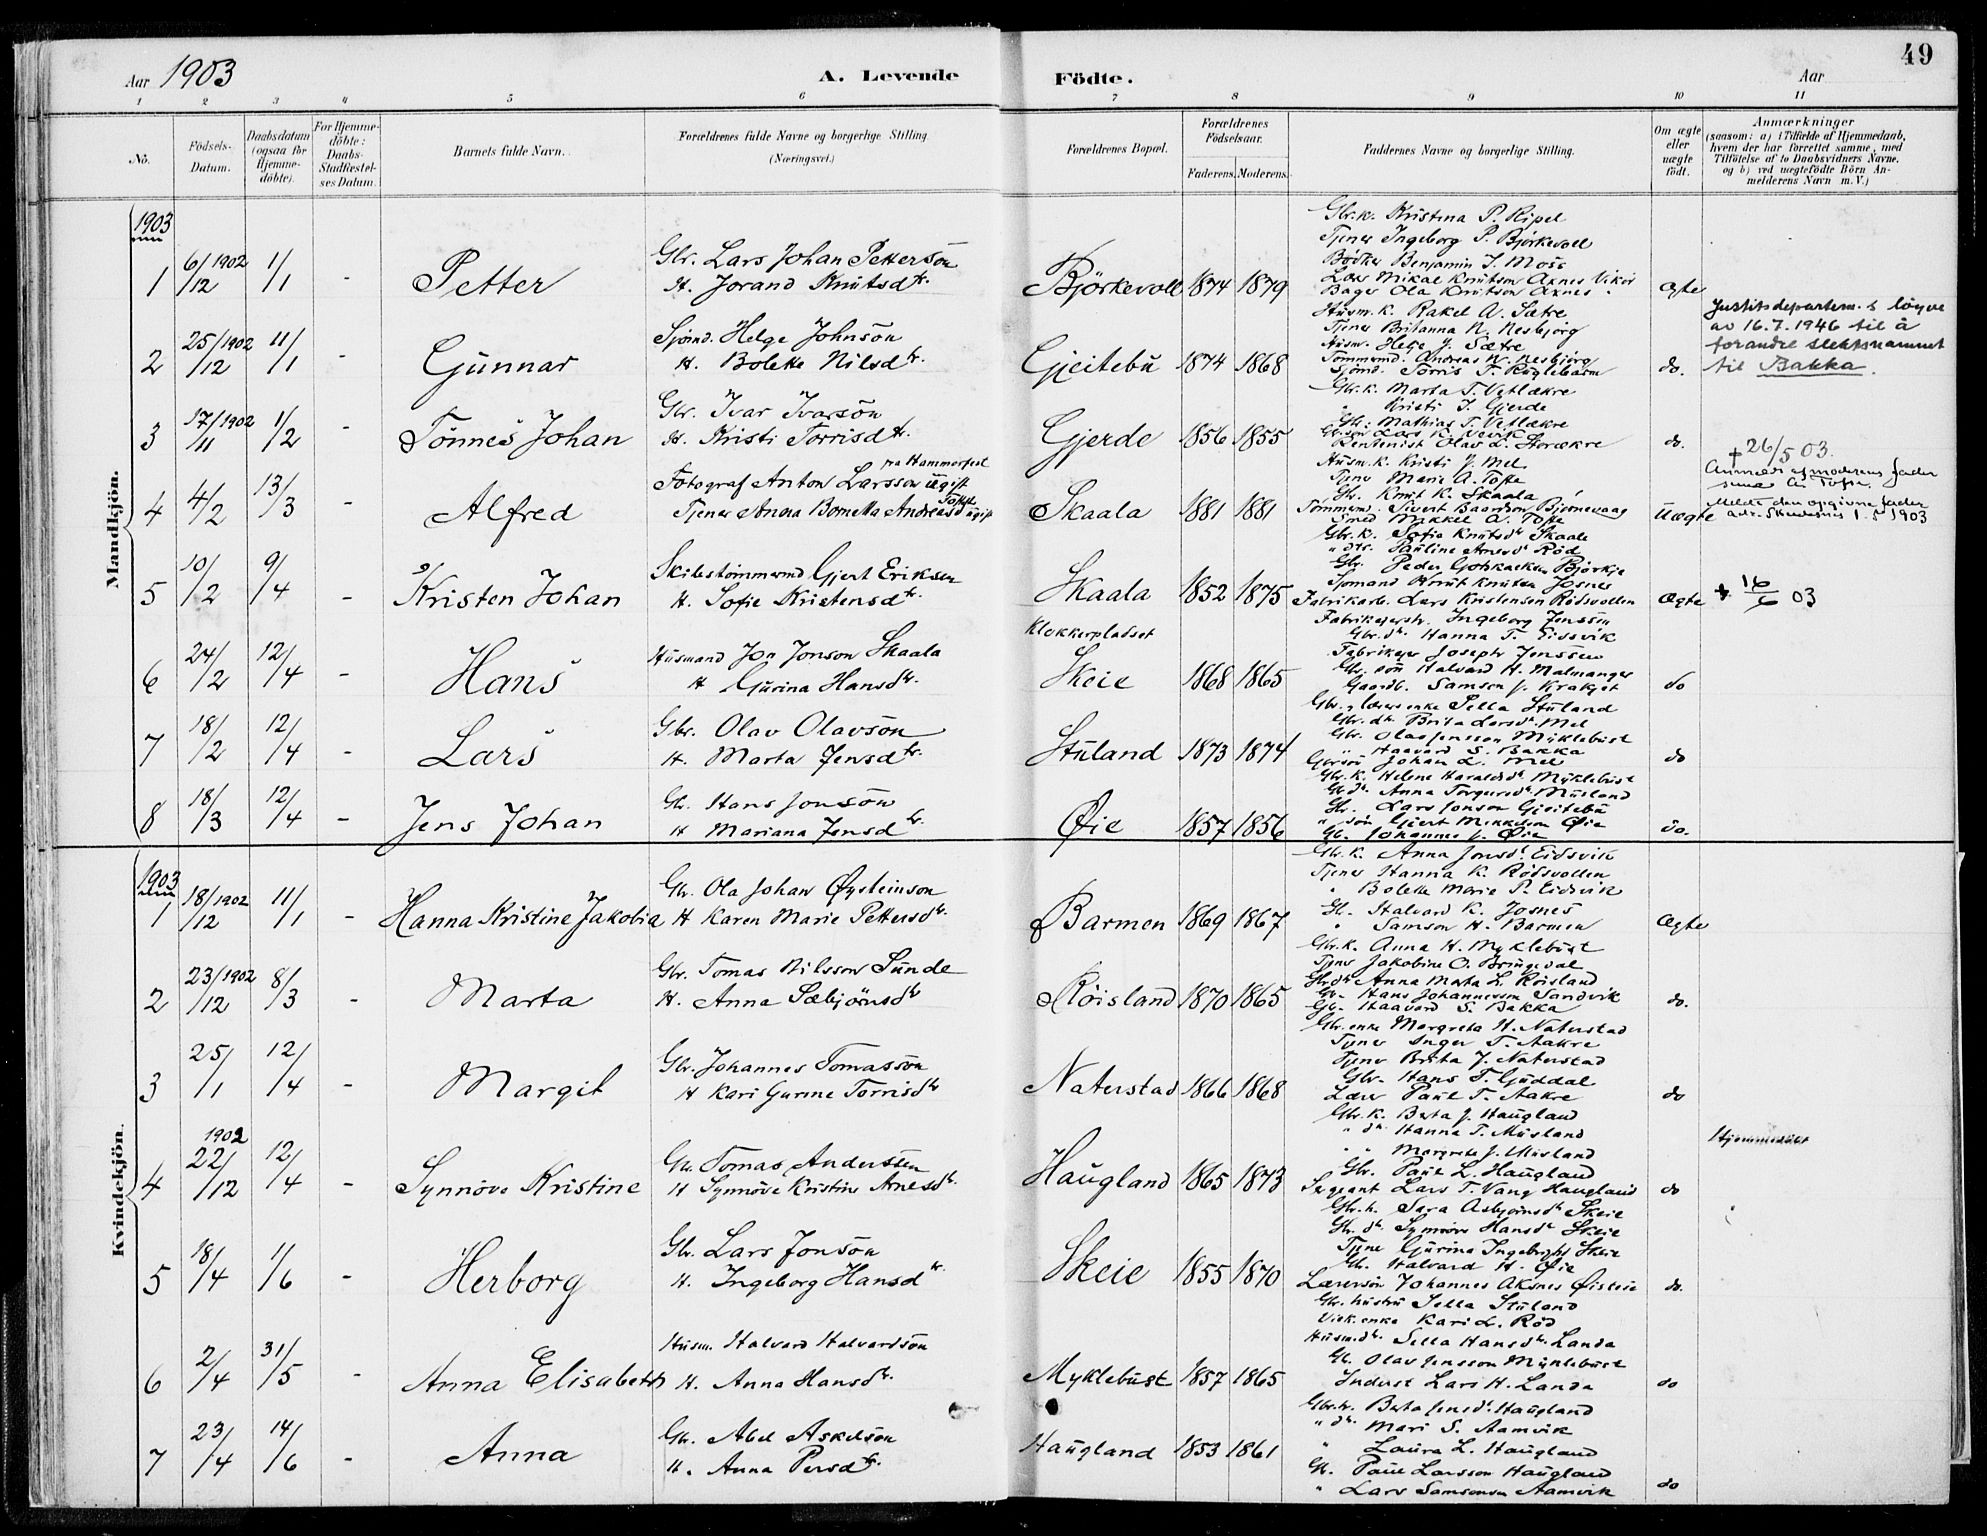 49
Aar 1903
A. Levende
Födte.
Aar
1 2 3 4 5 6 7 8 9 10 11
No.
Födsels-Datum.
Daabsdatum (ogsaa for Hjemmedöbte).
For Hjemmedöbte: Daabs-Stadfæstelses Datum.
Barnets fulde Navn.
Forældrenes fulde Navne og borgerlige Stilling.
(Næringsvei.)
Forældrenes Bopæl.
Forældrenes Födselsaar.
Faderens. Moderens.
Faddernes Navne og borgerlige Stilling.
Om ægte eller uægte födt.
Anmærkninger
(saasom: a) i Tilfælde af Hjemmedaab,
hvem der har forrettet samme, med
Tilföielse af to Daabsvidners Navne,
og b) ved uægtefödte Börn An-
melderens Navn m. V.)
Mandkjön.
1903
1 6/12 1902 1/1 - Petter
Gbr. Lars Johan Pettersön
H. Jorand Knutsdtr.
Björkevoll 1874 1879
Gbr.k. Kristina P. Ripel
Tjener Ingeborg P. Björkevoll
Bödker Benjamin J. Moss
Lærer Mikal Knutson Axnes Vikör
Bager Ola Knutson Axnes
ægte
2 25/12 1902 11/1 - Gunnar
Sjömd. Helge Johnsön
H. Bolette Nilsdtr.
Gjeitebu 1874 1868
Husm.k. Rakel A. Sætre
Tjener Britanna N. Nesbjörg
Husm. Helje J. Sætre
Tömmermd. Andreas N. Nesbjörg
Sjömd. Torris T.
do.
Justitsdepartem.s löyve
av 16.7.1946 til å
forandre slektsnamnet
til Bakka.
3 17/11 1902 1/2 - Tönnes Johan
Gbr. Ivar Ivarsön
H. Kristi Torrisdtr.
Gjerde 1856 1855
Gbr.k. Marta T. Vetlækre
" Kristi J. Gjerde
Gbr. Mathias T. Vetlækre
Olav L. Storækre
do.
4 4/2 13/3 - Alfred
fra Hammerfest
Fotograf Anton Larsson ugift
Tjener Anna Bornetta Andreasd Tofte ugift
Skaala 1881 1881
Husm.k. Kristi J. Mel
Tjener Marie A. Tofte
Gbr. Knut K. Skaala
Tömmermd. Sivert Baardson Bjørnevaag
Smed Mikkel A. Tofte
Uægte
+ 26/5 03.
Anmeldt af moderens fader
5 10/2 9/4 - Kristen Johan
Skibstömmermd Gjert Eriksen
H. Sofie Kristensdtr.
Skaala 1852 1875
Gbr.k. Sofia Knutsdtr Skaala
" dtr. Pauline Arnesdt Röd
Gbr. Peder Björkje
Sjömand Knut Knutsen Josnes
Fabrikarb. Lars Kristensen Rödsvollen
ægte
+ 16/6 03
6 24/2 12/4 - Hans
Husmand Jon Jonson Skaala
H Gurina Hansdtr.
Klokkerpladset
Skeie 1868 1865
Fabrikejerstr. Ingeborg Jenssön
Gbr.dtr. Hanna T. Eidsvik
Fabrikejer Joseph Jenssen
Gbr. sön Halvard H. Malmanger
Gaardb. Samson J. Krakjet
do
7 18/2 12/4 - Lars
Gbr. Olav Olavsön
H. Marta Jensdtr.
Stuland 1873 1874
Gbr., lærerenke Sella Stuland
Gbr.dtr. Brita Larsdtr. Mel
Gbr. Olav Jensson Myklebust
" Haavard S. Bakka
Gbrsön Johan L. Mel
do
8 18/3 12/4 - Jens Johan
Gbr. Hans Jonsön
H Mariana Jensdtr.
Øie 1857 1856
Gbr.k. Helene Haraldsdtr. Myklebust
Gbrdtr. Anna Torgersdtr. Musland
Gbr. Lars Jonson Gjeitebu
" sön Gjert Mikkelson Øie
Gbr. Johannes J. Øie
do.
Kvindekjön.
1903
1 18/12 1902 11/1 - Hanna Kristine Jakobia
Gbr. Ola Johan Øysteinson
H Karen Marie Pettersdtr.
Barmen 1869 1867
Gbr.k. Anna Jonsdt. Eidsvik
Tjener Hanna K. Rödsvollen
" Bolette Marie P. Eidsvik
Gbr. Halvard K. Josnes
" Samson H. Barmen
ægte
2 23/12 1902 8/3 - Marta
Gbr. Tomas Nilsson Sunde
H. Anna Sæbjörnsdtr
Röisland 1870 1865
Gbr.k. Anna H. Myklebust
Tjener Jakobine O. Bringeval
Gbrdtr Anna Marta L. Röisland
Gbr. Hans Johannesson Sandvik
Gbr. Haavard S. Bakka
do.
3 25/1 12/4 - Margit
Gbr. Johannes Tomassön
H Kari Gurine Torrisdtr
Naterstad 1866 1868
Gbr. enke Margreta H. Naterstad
Tjener Inger T. Aakre
Tjener Brita J. Naterstad
Gbr. Hans T. Guddal
Lærer Paul T. Aakre
do
4 1902 22/12 12/4 - Synnöve Kristine
Gbr. Tomas Anderssen
H Synnöve Kristine Arnesdtr.
Haugland 1865 1873
Gbr.k. Berta J. Haugland
" dtr. Hanna T. Musland
" " Margreta J. Musland
Gbr. Paul L. Haugland
Sergeant Lars T. Vang Haugland
do
Hjemmedöbt
5 18/4 1/6 - Herborg
Gbr. Lars Jonsön
H. Ingeborg Hansdtr
Skeie 1855 1870
Gbr.k. Sara Asbjörnsdtr Skeie
Gbr.dtr. Synnöve Hansdtr Skeie
Tjener Gurina Ingebrigts Skeie
Gbr. Halvard H. Øie
Lærersön Johannes Aksnes Øisteise
do.
6 2/4 31/5 - Anna Elisabeth
Husm. Halvard Halvardsön
H. Anna Hansdtr.
Myklebust 1857 1865
Gbr. hustru Sella Stuland
enke Kari L. Röd
Husm.dtr. Sella Hansdtr. Landa
Gbr. Olav Jensson Myklebust
Inderst Lars H. Landa
do
7 23/4 14/6 - Anna
Gbr. Abel Askelsön
H. Anna Persdtr.
Haugland 1853 1861
Gbr.k. Berta Jensdtr. Haugland
" dtr. Mari S. Aamvik
" Laura L. Haugland
Gbr. Paul Larsson Haugland
" Lars Samsonsen Aamvik
do